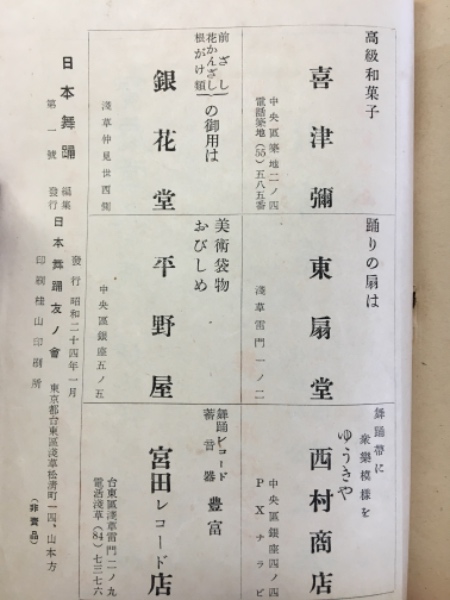 高級和菓子
喜津彌
中央區築地二ノ四
電話築地(55)五八五番
踊りの扇は
東扇堂
淺草雷門一ノ二
舞踊帯に
衆樂模様を
ゆうきや
西村商店
中央區銀座四ノ四
PXナラビ
前ざし
花かんざし
根がけ類
の御用は
銀花堂
淺草仲見世西側
美術袋物
おびしめ
平野屋
中央區銀座五ノ五
舞踊レコード
蓄音器
豊富
宮田レコード店
台東區淺草雷門二ノ九
電話淺草(84)七三七六
日本舞踊
第一號
編集
發行
日本舞踊友ノ會
東京都台東區淺草松清町一四、山本方
發行 昭和二十四年一月
印刷 山印刷所
(非賣品)